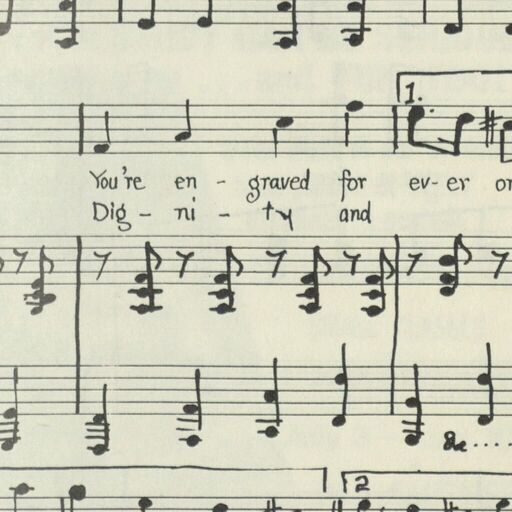 1.
You're en - graved for ev-er or
Dig - ni - ty and
8va....
2